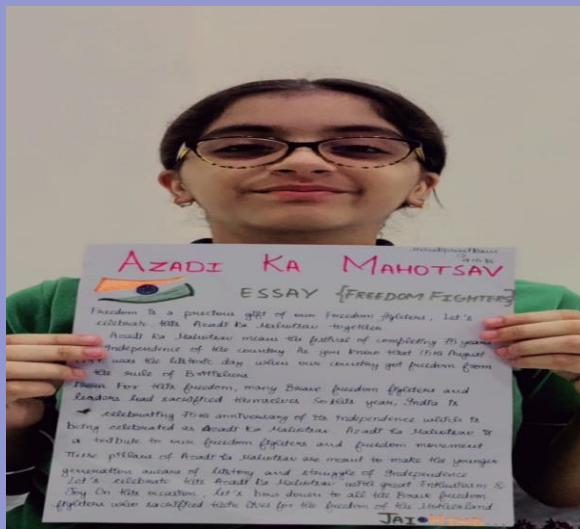 AZADI KA MAHOTSAV
ESSAY {FREEDOM FIGHTERS}
Freedom is a precious gift of our Freedom fighters, Let's
celebrate this Azadi Ka Mahotsav together
Azadi Ka Mahotsav means the festival of completing 75 years
Independence of the country As you know that 15th August
was the historic day when our country got freedom from
the rule of Britishers
For this freedom, many Brave freedom fighters and
leaders had sacrificed themselves So this year, India is
celebrating 75th anniversary of its Independence which is
being celebrated as Azadi Ka Mahotsav Azadi Ka Mahotsav is
a tribute to our freedom fighters and freedom movement
These pillars of Azadi Ka Mahotsav are meant to make the younger
generation aware of history and struggle of Independence
Let's celebrate this Azadi Ka Mahotsav with great Enthusiasm &
Joy On this occasion, let's bow down to all the Brave freedom
fighters who sacrificed their lives for the freedom of the Motherland
JAI HIND